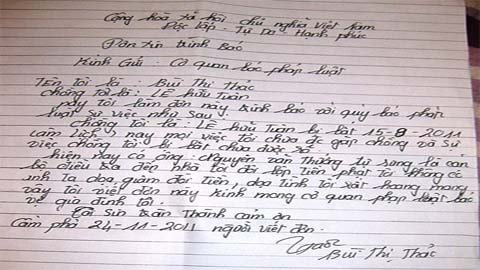 Cộng hòa xã hội chủ nghĩa Việt Nam
Độc lập - Tự Do - Hạnh phúc
Đơn xin trình Báo
Kính Gửi : Cơ quan bác pháp luật
Tên tôi là : Bùi Thị Thác
chồng tôi là : LÊ hữu Tuân
nay Tôi làm đơn này kính báo với quý bác pháp
luật sự việc như sau.
chồng Tôi là : LÊ hữu Tuân bị bắt 15-8-2011
(âm lịch) nay mọi việc tôi chưa được gặp chồng và Sự
việc chồng Tôi bị bắt chưa được rõ
hiện nay có ông : Nguyễn văn Thưởng tự xưng là cán
bộ điều tra đến nhà tôi đòi tiền phạt tôi không có
anh Ta dọa giảm đòi tiền, dọa tính tôi rất hoang mang
vậy Tôi viết đơn này kính mong cơ quan pháp luật bảo
vệ gia đình tôi.
Tôi Xin trân Thành cảm ơn
Cẩm phả 24-11-2011 người viết đơn.
Thác
Bùi Thị Thác